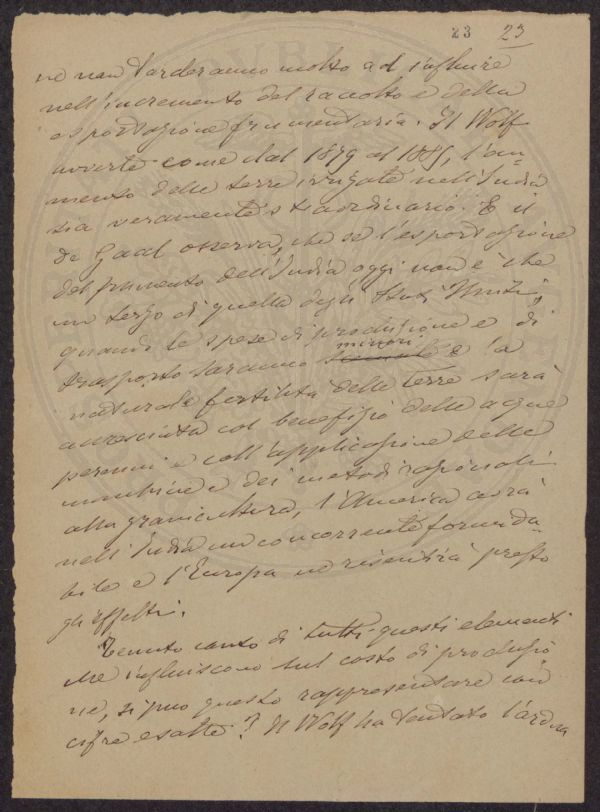 23 23
ne non tarderanno molto ad influire
nell'incremento del raccolto e della
esportazione frumentaria. Il Wolf
avverte come dal 1879 al 1885, l'au-
mento delle terre irrigate nell'India
sia veramente straordinario. E il
de Gaal osserva, che se l'esportazione
del frumento dell'India oggi non è che
un terzo di quella degli Stati Uniti,
quando le spese di produzione e di
trasporto saranno minori e la
naturale fertilità delle terre sarà
accresciuta col benefizio delle acque
perenni e coll'applicazione delle
macchine e dei metodi razionali
alla granicultura, l'America avrà
nell'India un concorrente formida-
bile e l'Europa ne risentirà presto
gli effetti.
Tenuto conto di tutti questi elementi
che influiscono sul costo di produzio
ne, si può questo rappresentare con
cifre esatte? Il Wolf ha tentato l'ardua